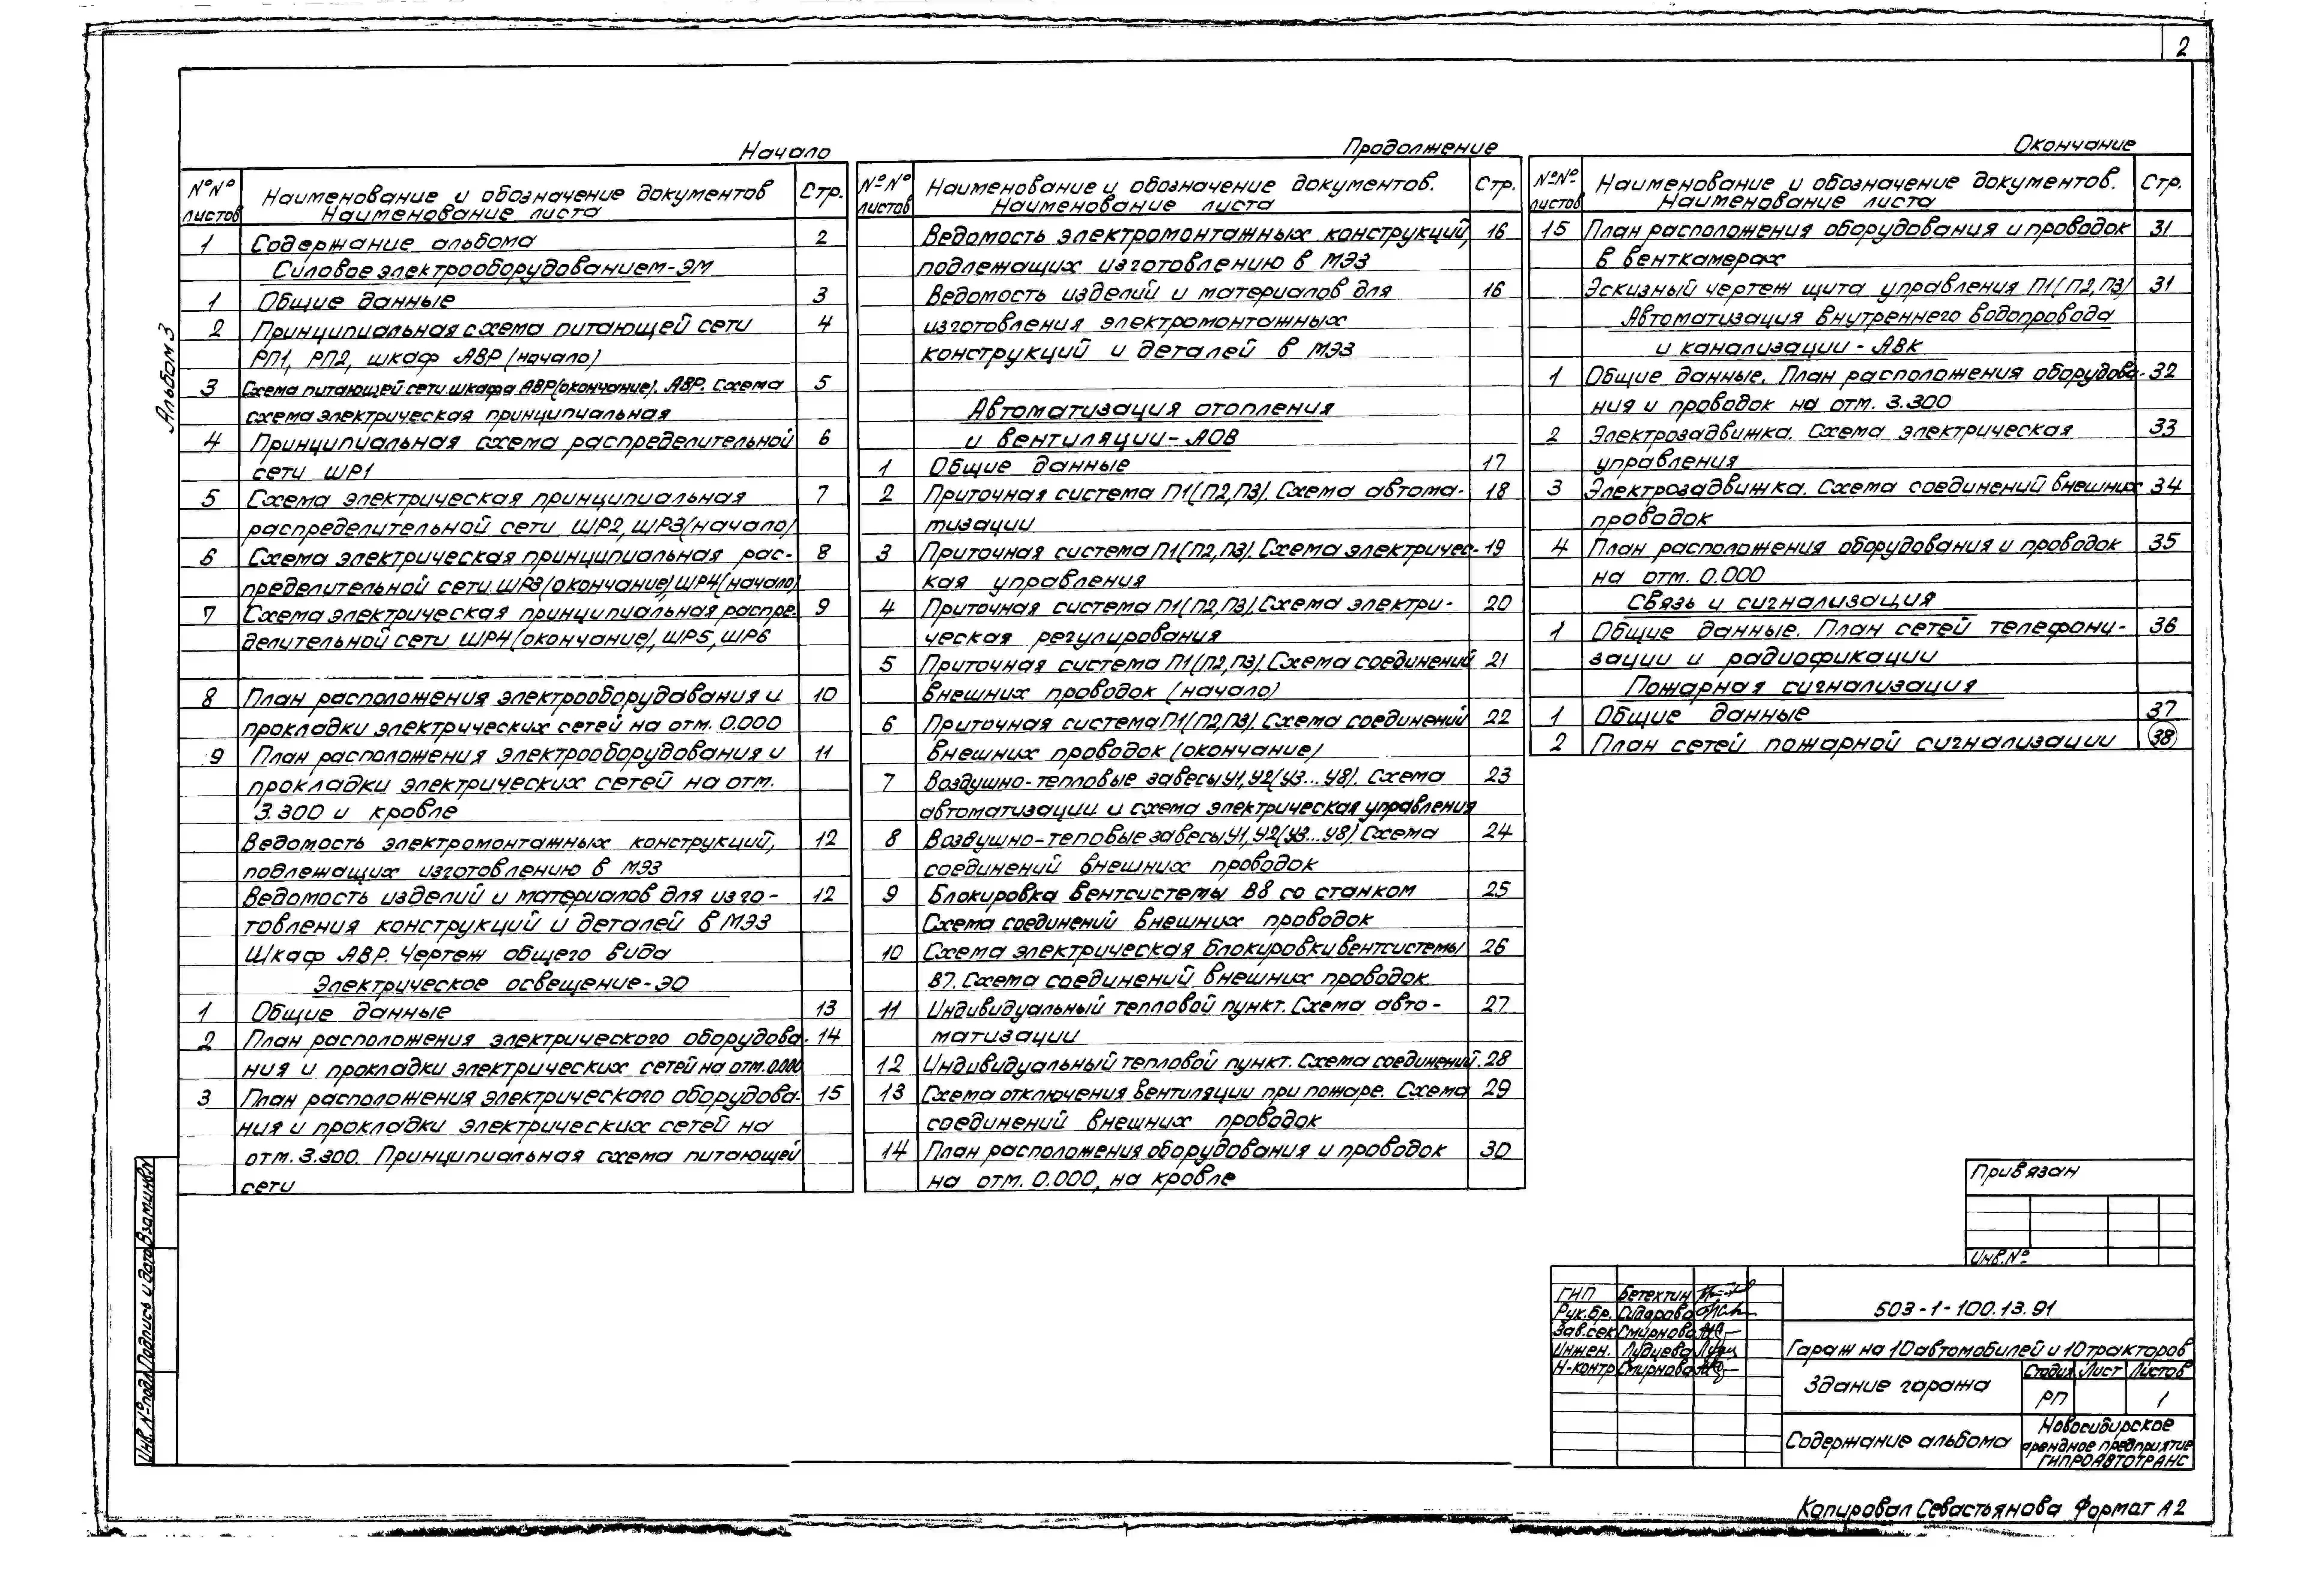 2
Альбом 3
Начало
№№ листов Наименование и обозначение документов Наименование листа Стр.
1 Содержание альбома 2
Силовое электрооборудованием-ЭМ
1 Общие данные 3
2 Принципиальная схема питающей сети 4
РП1, РП2, шкаф АВР (начало)
3 Схема питающей сети шкафа АВР (окончание). АВР. Схема 5
схема электрическая принципиальная
4 Принципиальная схема распределительной 6
сети ШР1
5 Схема электрическая принципиальная 7
распределительной сети ШР2, ШР3 (начало)
6 Схема электрическая принципиальная рас- 8
пределительной сети ШР3 (окончание), ШР4 (начало)
7 Схема электрическая принципиальная распре- 9
делительной сети ШР4 (окончание), ШР5, ШР6
8 План расположения электрооборудования и 10
прокладки электрических сетей на отм. 0.000
9 План расположения электрооборудования и 11
прокладки электрических сетей на отм.
3.300 и кровле
Ведомость электромонтажных конструкций, 12
подлежащих изготовлению в МЭЗ
Ведомость изделий и материалов для изго- 12
товления конструкций и деталей в МЭЗ
Шкаф АВР. Чертеж общего вида
Электрическое освещение-ЭО
1 Общие данные 13
2 План расположения электрического оборудова- 14
ния и прокладки электрических сетей на отм. 0.000
3 План расположения электрического оборудова- 15
ния и прокладки электрических сетей на
отм. 3.300. Принципиальная схема питающей
сети
Продолжение
№№ листов Наименование и обозначение документов. Наименование листа Стр.
Ведомость электромонтажных конструкций, 16
подлежащих изготовлению в МЭЗ
Ведомость изделий и материалов для 16
изготовления электромонтажных
конструкций и деталей в МЭЗ
Автоматизация отопления
и вентиляции-АОВ
1 Общие данные 17
2 Приточная система П1(П2,П3). Схема автома- 18
тизации
3 Приточная система П1(П2,П3). Схема электричес- 19
кая управления
4 Приточная система П1(П2,П3). Схема электри- 20
ческая регулирования
5 Приточная система П1(П2,П3). Схема соединений 21
внешних проводок (начало)
6 Приточная система П1(П2,П3). Схема соединений 22
внешних проводок (окончание)
7 Воздушно-тепловые завесы У1, У2(У3...У8). Схема 23
автоматизации и схема электрическая управления
8 Воздушно-теповые завесы У1, У2(У3...У8). Схема 24
соединений внешних проводок
9 Блокировка вентсистемы В8 со станком 25
Схема соединений внешних проводок
10 Схема электрическая блокировки вентсистемы 26
В7. Схема соединений внешних проводок.
11 Индивидуальный тепловой пункт. Схема авто- 27
матизации
12 Индивидуальный тепловой пункт. Схема соединений. 28
13 Схема отключения вентиляции при пожаре. Схема 29
соединений внешних проводок
14 План расположения оборудования и проводок 30
на отм. 0.000, на кровле
Окончание
№№ листов Наименование и обозначение документов. Наименование листа Стр.
15 План расположения оборудования и проводок 31
в венткамерах
Эскизный чертеж щита управления П1(П2,П3) 31
Автоматизация внутреннего водопровода
и канализации - АВК
1 Общие данные. План расположения оборудова- 32
ния и проводок на отм. 3.300
2 Электрозадвижка. Схема электрическая 33
управления
3 Электрозадвижка. Схема соединений внешних 34
проводок
4 План расположения оборудования и проводок 35
на отм. 0.000
Связь и сигнализация
1 Общие данные. План сетей телефони- 36
зации и радиофикации
Пожарная сигнализация
1 Общие данные 37
2 План сетей пожарной сигнализации 38
Привязан
Инв.№
ГИП Бетехтин
Рук.бр. Сидарова
Зав.сек Смирнова
Инжен.
Н-контр Смирнова
503-1-100.13.91
Гараж на 10 автомобилей и 10 тракторов
Здание гаража
Стадия Лист Листов
РП 1
Содержание альбома
Новосибирское
арендное предприятие
ГИПРОАВТОТРАНС
Инв. № подл Подпись и дата Взам.инв.№
Копировал Севастьянова Формат А2